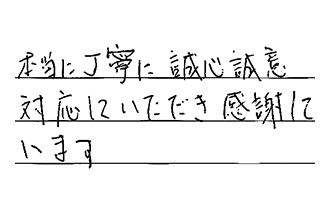 本当に丁寧に誠心誠意
対応していただき感謝して
います